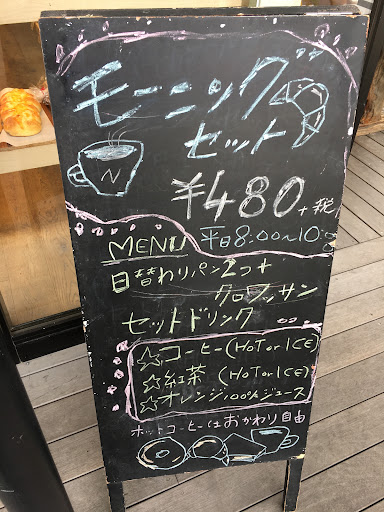 モーニング
セット
N
¥480
+税
MENU 平日8:00~10:00
日替わりパン2つ+
クロワッサン
セットドリンク
☆コーヒー(HOT or ICE)
☆紅茶 (HOT or ICE)
☆オレンジ100%ジュース
ホットコーヒーはおかわり自由